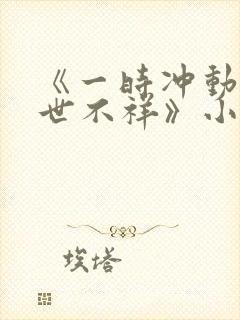 《一時冲動
世不祥》小
埃塔